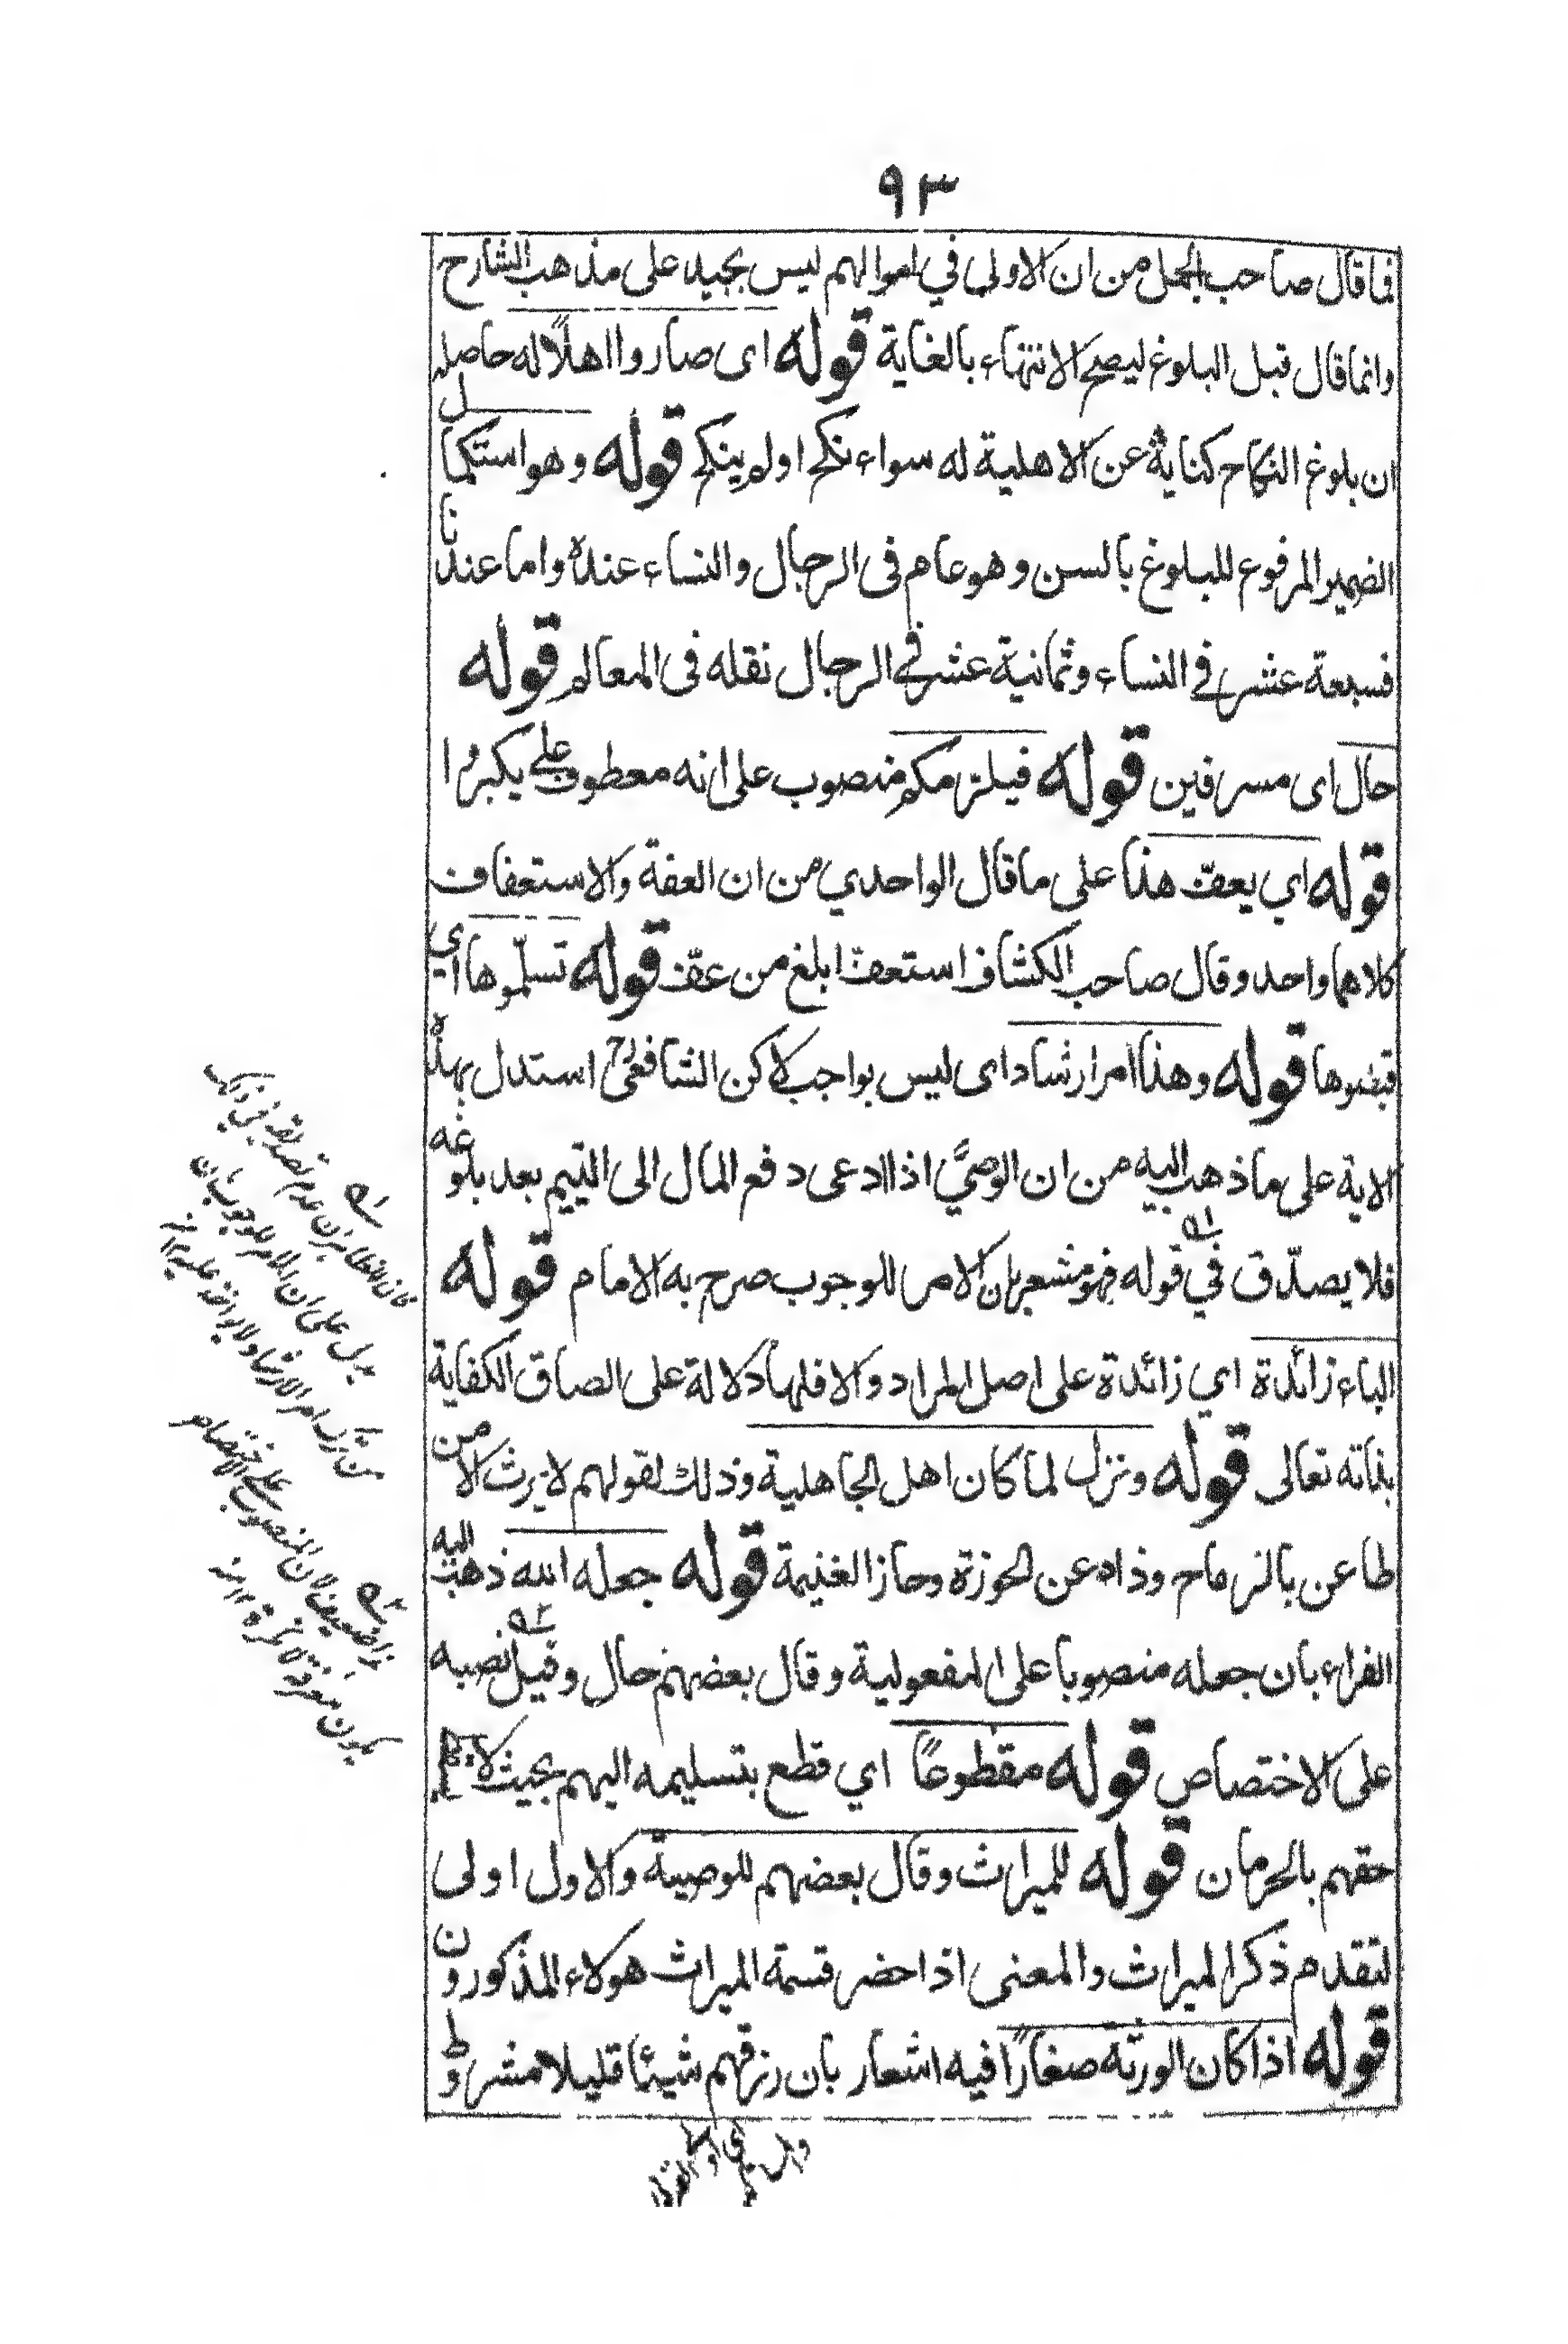 ٩٣
فما قال صاحب الجمل من ان الاولى في اموالهم ليس بجيد على مذهب الشارح
وانما قال قبل البلوغ ليصح الانتهاء بالغاية قوله اى صاروا اهلًا له حاصله
ان بلوغ النكاح كناية عن الاهلية له سواء نكح اولم ينكح قوله وهو استكمال
الضمير المرفوع للبلوغ بالسن وهو عام فى الرجال والنساء عنده واما عندنا
فسبعة عشر في النساء وثمانية عشر في الرجال نقله فى المعالم قوله
حال اى مسرفين قوله فيلزمكم منصوب على انه معطوف على يكبروا
قوله اي يعفّ هذا على ما قال الواحدي من ان العفة والاستعفاف
كلاهما واحد وقال صاحب الكشاف استعفّ ابلغ من عفّ قوله تسلّموها اي
قبضوها قوله وهذا امر ارشاد اى ليس بواجب لاكن الشافعىؒ استدل بهذه
الاية على ما ذهب اليه من ان الوصيَّ اذا ادعى دفع المال الى اليتيم بعد بلوغه
فلا يصدّق في قوله فهو مشعر بان الامر للوجوب صرح به الامام قوله
الباء زائدة اي زائدة على اصل المراد والا فلها دلالة على الصاق الكفاية
بذاته تعالى قوله ونزل لما كان اهل الجاهلية وذلك لقولهم لا يرث الا من
طاعن بالرماح وذاد عن الحوزة وحاز الغنيمة قوله جعله الله ذهب اليه
الفراء بان جعله منصوبا على المفعولية وقال بعضهم حال وقيل نصبه
على الاختصاص قوله مقطوعًا اي قطع بتسليمه اليهم بحيث لا
حقهم بالحرمان قوله للميراث وقال بعضهم للوصية والاول اولى
لتقدم ذكر الميراث والمعنى اذا حضر قسمة الميراث هولاء المذكورون
قوله اذا كان الورثة صغارًا فيه اشعار بان رزقهم شيئا قليلا مشروط